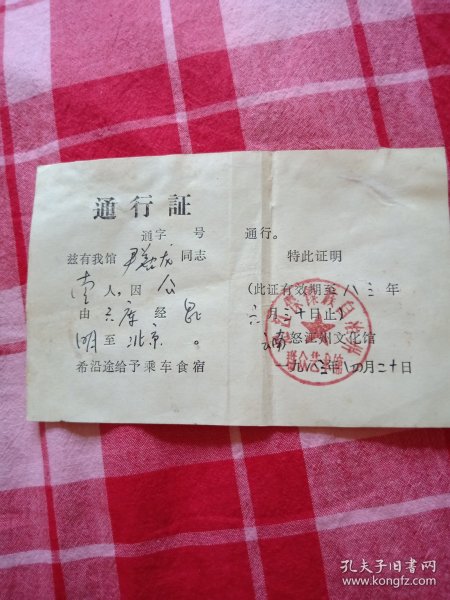 通行証
通字 号
兹有我馆 同志
壹人,因公
由六库经昆
明至北京。
希沿途给予乘车食宿
通行。
特此证明
(此证有效期至八三年
六月三十日止)
云南怒江州文化馆
一九八三年四月二十日
孔夫子旧书网
www.kongfz.com